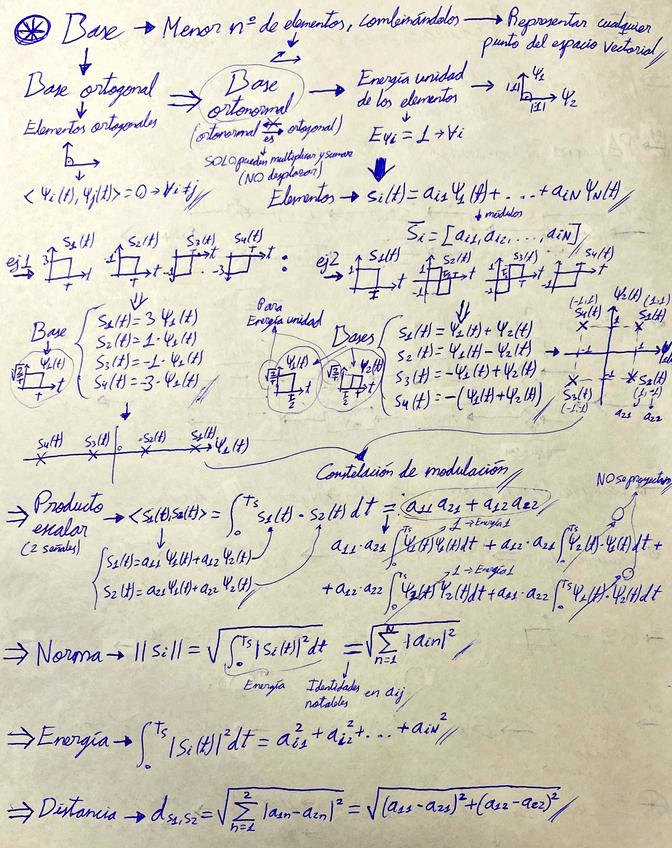 ⊛ Base → Menor nº de elementos, combinándolos → Representar cualquier
punto del espacio vectorial
Base ortogonal ⇒ Base ortonormal → Energía unidad de los elementos → |1| Ψ1 |1| Ψ2
Elementos ortogonales
(ortonormal es ortogonal)
EΨi = 1 → ∀i
SOLO pueden multiplicar y sumar
(NO desplazar)
< Ψi(t), Ψj(t) > = 0 → ∀i≠j
Elementos → Si(t) = ai1 Ψ1(t) + ... + aiN ΨN(t)
módulos
Si = [ai1, ai2, ..., aiN]
ej1 → 3 S1(t) T t 1 S2(t) T t -1 S3(t) T t -3 S4(t) T t : ej2 → 1 S1(t) T t S2(t) t S3(t) t -1 S4(t) T t
Base
Ψ1(t) T t
S1(t) = 3 Ψ1(t)
S2(t) = 1 · Ψ1(t)
S3(t) = -1 · Ψ1(t)
S4(t) = -3 · Ψ1(t)
Para
Energía unidad
Bases
Ψ1(t) T/2 t
Ψ2(t) T/2 t
S1(t) = Ψ1(t) + Ψ2(t)
S2(t) = Ψ1(t) - Ψ2(t)
S3(t) = -Ψ1(t) + Ψ2(t)
S4(t) = -(Ψ1(t) + Ψ2(t))
(-1,1) Ψ2(t) (1,1)
S4(t) 1 S1(t)
-1 1
S3(t) -1 S2(t)
(-1,-1) (1,-1)
a21 a22
S4(t) S3(t) 0 S2(t) S1(t) Ψ1(t)
Constelación de modulación
NO se proyectan
⇒ Producto escalar → <S1(t), S2(t)> = ∫0Ts S1(t) · S2(t) dt = a11 a21 + a12 a22
(2 señales)
1 → Energía 1
a11 · a21 ∫0Ts Ψ1(t) Ψ1(t) dt + a12 · a21 ∫0Ts Ψ2(t) · Ψ1(t) dt +
S1(t) = a11 Ψ1(t) + a12 Ψ2(t)
S2(t) = a21 Ψ1(t) + a22 Ψ2(t)
1 → Energía 1
+ a12 · a22 ∫0Ts Ψ2(t) Ψ2(t) dt + a11 · a22 ∫0Ts Ψ1(t) · Ψ2(t) dt
⇒ Norma → ||Si|| = √∫0Ts |Si(t)|² dt = √∑n=1N |ain|²
Energía Identidades notables en aij
⇒ Energía → ∫0Ts |Si(t)|² dt = ai1² + ai2² + ... + aiN²
⇒ Distancia → dS1,S2 = √∑n=12 |a1n - a2n|² = √(a11 - a21)² + (a12 - a22)²